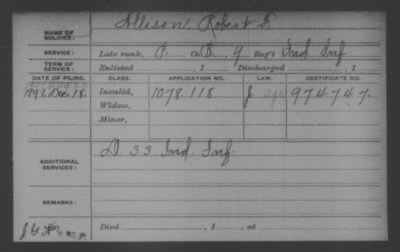 NAME OF SOLDIER: Allison, Robert F.
SERVICE: Late rank, P. Co. B, 9 Reg't Ind Inf
TERM OF SERVICE: Enlisted , 1 . Discharged , 1
DATE OF FILING. CLASS. APPLICATION NO. LAW. CERTIFICATE NO.
1891, Dec 18. Invalid, 1078.118 J 974747.
Widow,
Minor,
ADDITIONAL SERVICES: D. 33 Ind. Inf.
REMARKS:
Died , 1 , at